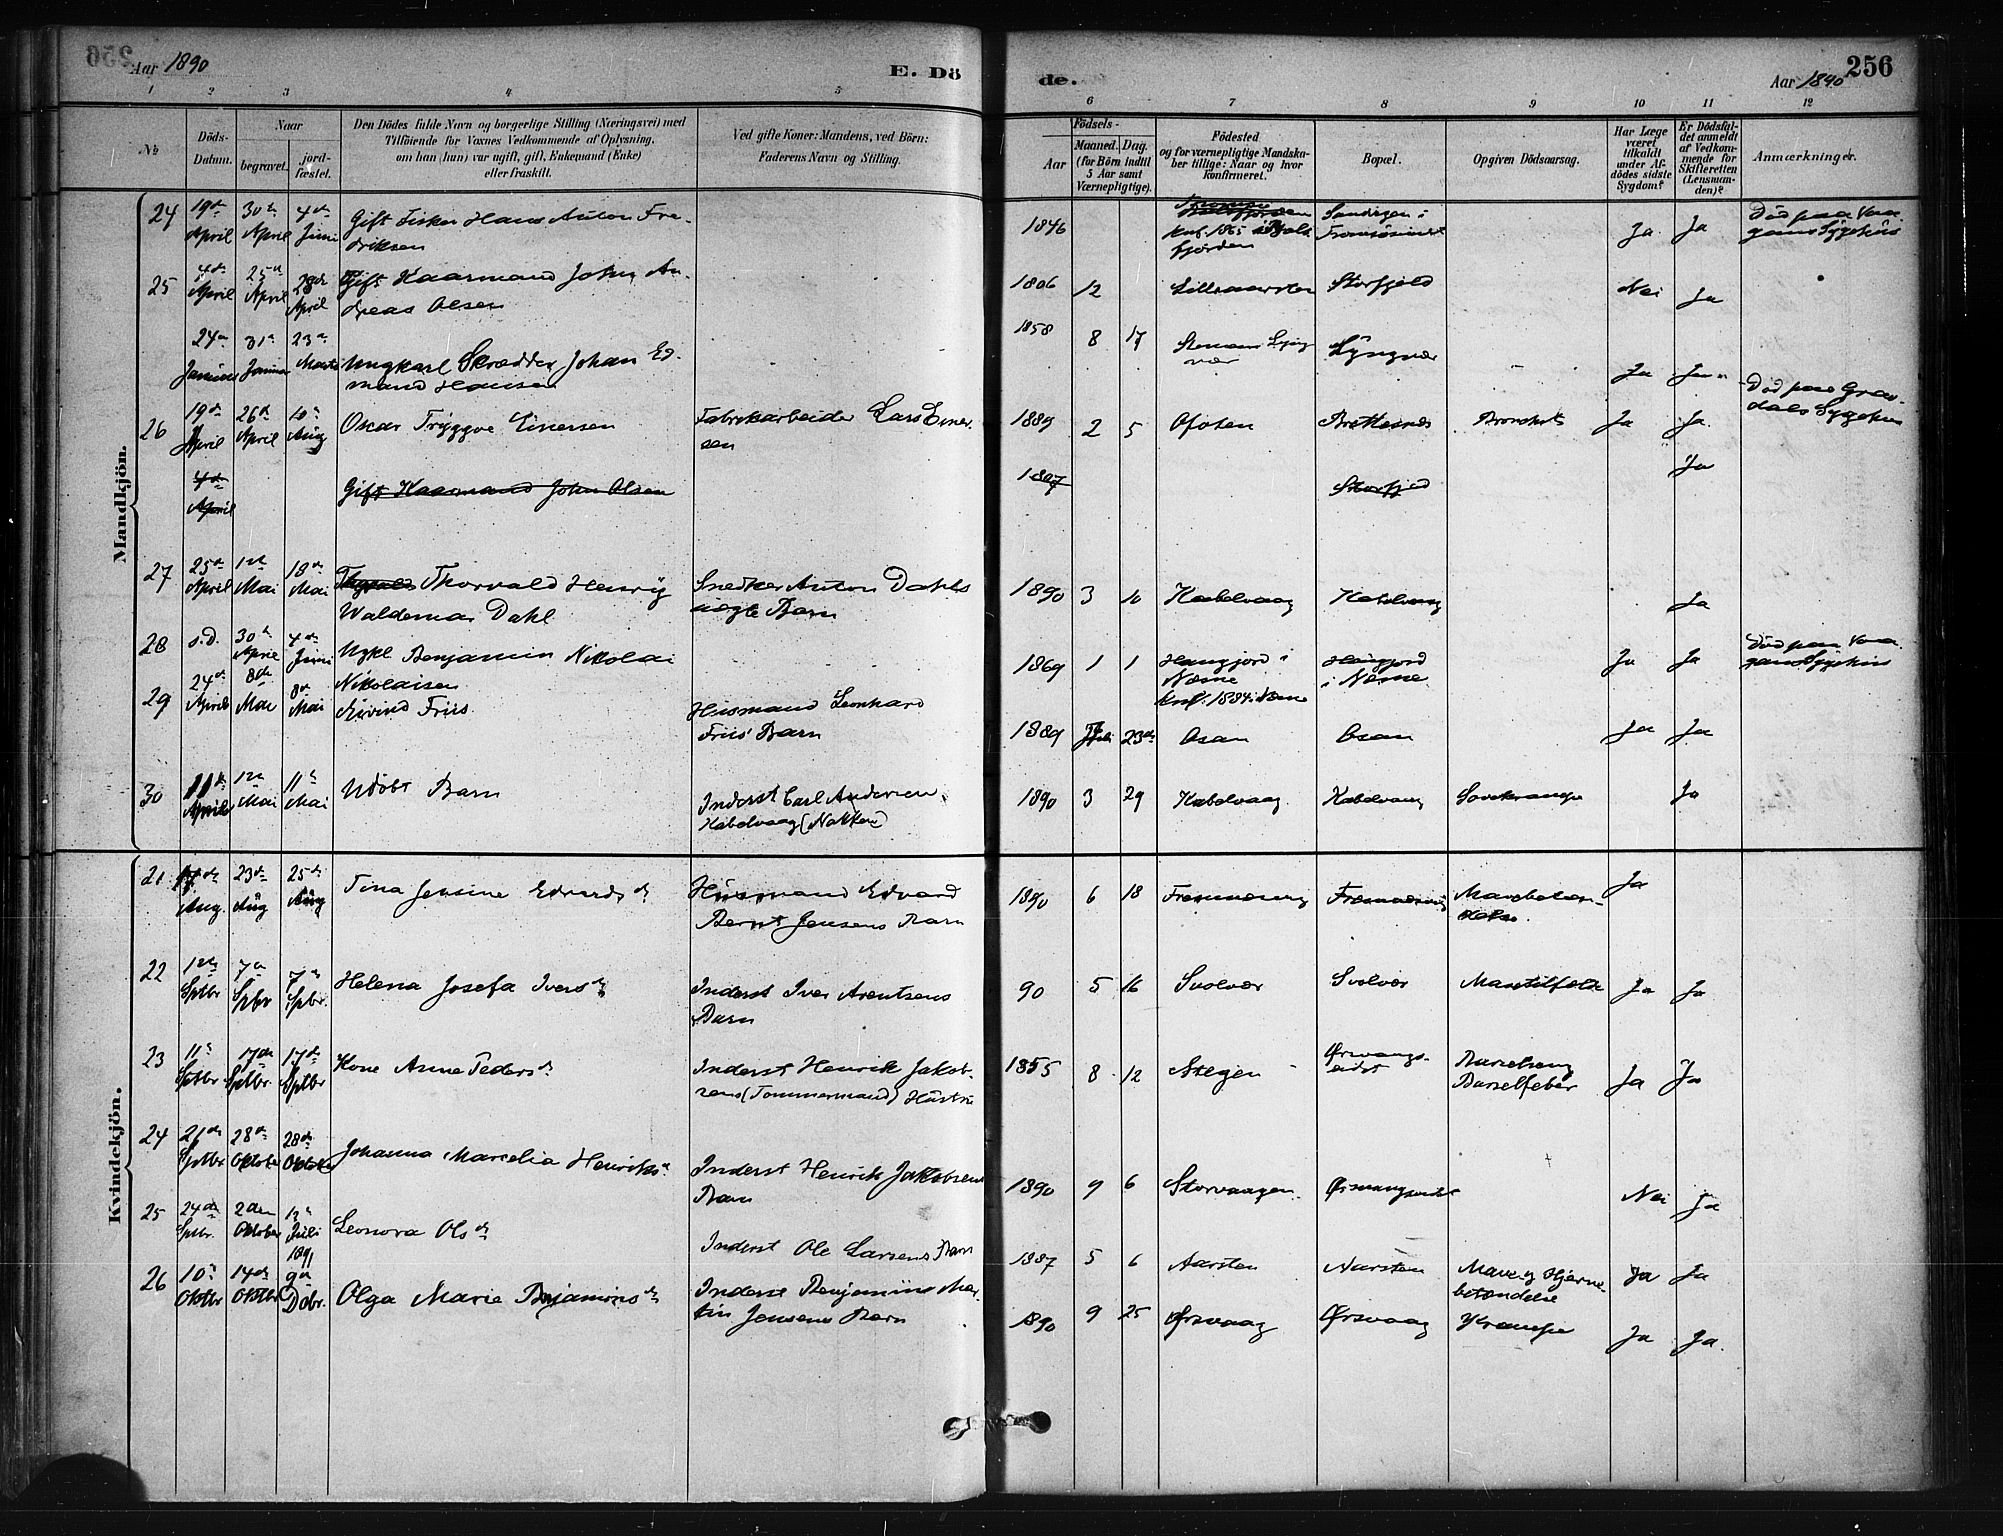 Aar 1890
E. Dö
de.
Aar 1890
256
1 2 3 4 5 6 7 8 9 10 11 12
№
Döds-
Datum.
Naar
begravet.
jord-
fæstet.
Den Dödes fulde Navn og borgerlige Stilling (Næringsvei) med
Tilföiende for Voxnes Vedkommende af Oplysning,
om han (hun) var ugift, gift, Enkemand (Enke)
eller fraskilt.
Ved gifte Koner: Mandens, ved Börn:
Faderens Navn og Stilling.
Födsels-
Aar
Maaned. Dag.
(for Börn indtil
5 Aar samt
Værnepligtige).
Födested
og for værnepligtige Mandska-
ber tillige: Naar og hvor
konfirmeret.
Bopæl.
Opgiven Dödsaarsag.
Har Læge
været
tilkaldt
under Af-
dödes sidste
Sygdom?
Er Dödsfal-
det anmeldt
af Vedkom-
mende for
Skifteretten
(Lensman-
den)?
Anmærkninger.
Mandkjön.
24 19de April 30te April 4de Juni Gift Fisker Hans Anton Fre-
driksen
1846 knf. 1865 i Tromsösundet Ja Ja Död paa Vaa-
gans Sygehus
25 4de April 25de April 28de April Gift Kaarmand John An-
dreas Olsen
1806 12 Lilleaarsten Storfjeld Nei Ja
24de Januar 31te Januar 23de Marts Ungkarl Skrædder Johan Ed-
mand Hansen
1858 8 17 Lyngvær Ja Ja Död paa Grav-
dals Sygehus
26 19de April 26de April 10de Aug Oskar Tryggve Einersen Fabrikarbeider Lars Einer-
sen
1889 2 5 Ofoten Brettesnæs Bronchit Ja Ja
4de April Gift Kaarmand John Olsen 1807 Storfjeld Ja
27 25de April 1ste Mai 18de Mai Thorvald Henrig
Waldemar Dahl
Snedker Anton Dahls
ægte Barn
1890 3 10 Kabelvaag Kabelvaag Ja
28 s.D. 30te April 4de Juni Ugkl Benjamin Nikolai
Nikolaisen
1869 1 1 Haugfjord i
Næsne
knf. 1884 i Næsne
Haugfjord
i Næsne
Ja Ja Död paa Vaa-
gans Sygehus
29 24de April 8de Mai 8de Mai Eivind Friis Husmand Leonhard
Friis' Barn
1889 Juli 23de Osan Osan Ja Ja
30 11te April 1ste Mai 11te Mai Udöbt Barn Inderst Carl Andersen
Kabelvaag (Nakken)
1890 3 29 Kabelvaag Kabelvaag Ja
Kvindekjön.
21 17de Aug. 23de Aug 25de Aug Tina Jensine Edvardsd Husmand Edvard
Bernt Jensens Barn
1890 6 18 Ja
22 1ste Sptbr 7de Spbr 7de Spbr. Helena Josefa Iversd Inderst Iver Arentsens
Barn
90 5 16 Svolvær Svolvær Mavetilfælde Ja Ja
23 11te Sptbr 17de Sptbr. 17de Sptbr Kone Anne Pedersd Inderst Henrik Jakob-
sens (Tommermand) Hustru
1855 8 12 Stegen Ørsvaags-
eidet
Barselseng
Barselfeber
Ja Ja
24 21de Sptbr 28de Oktober 28de Oktober Johanna Marselia Henriksd Inderst Henrik Jakobsens
Barn
1890 9 6 Storvaagen Ørsvaagseidet Nei Ja
25 24de Sptbr. 2den Oktober 12te Juli 1891 Leonora Olsd Inderst Ole Larsens Barn
1887 5 6 Aarsten Aarsten Mave og Hjerne-
betændelse
Ja Ja
26 10de Oktbr 14de Oktbr 9de Dcbr. Olga Marie Benjaminsd Inderst Benjamins Mar-
tin Jensens Barn
1890 9 25 Ørsvaag Ørsvaag Krampe Ja Ja.